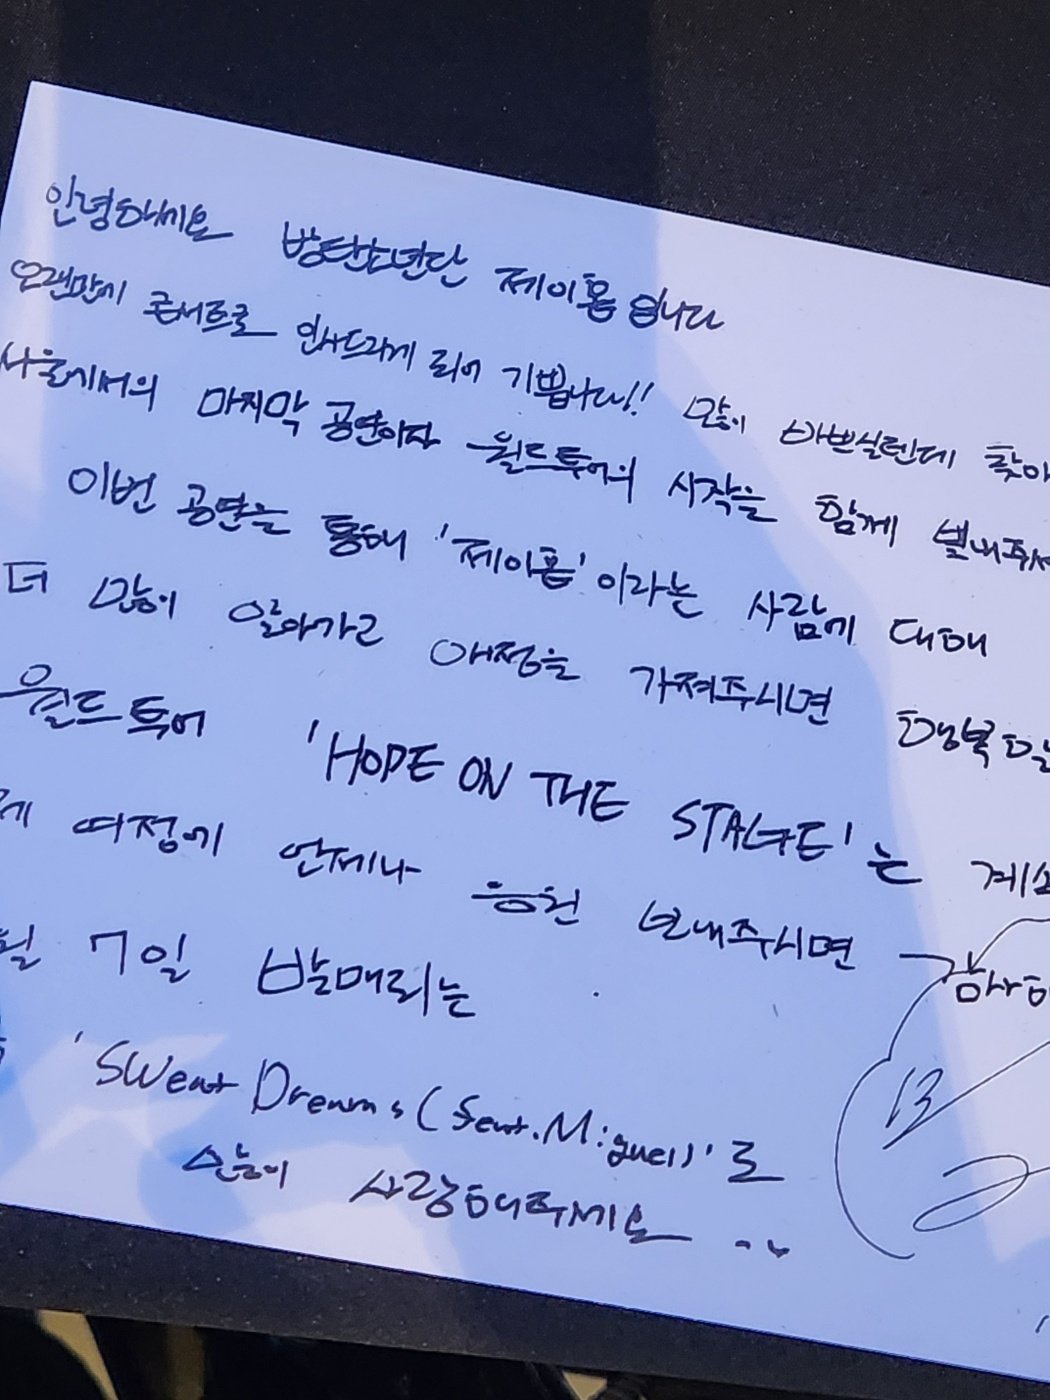 안녕하세요 방탄소년단 제이홉입니다
오랜만에 콘서트로 인사드리게 되어 기쁩니다!! 많이 바쁘실텐데 찾아
서울에서의 마지막 공연이자 월드투어의 시작을 함께 빛내주셔
이번 공연을 통해 '제이홉'이라는 사람에 대해
더 많이 알아가고 애정을 가져주시면 행복할
월드투어 'HOPE ON THE STAGE'는 계속
여정에 언제나 응원 보내주시면 감사하
월 7일 발매되는
'Sweet Dreams (feat. Miguel)'로
많이 사랑해주세요 ^^